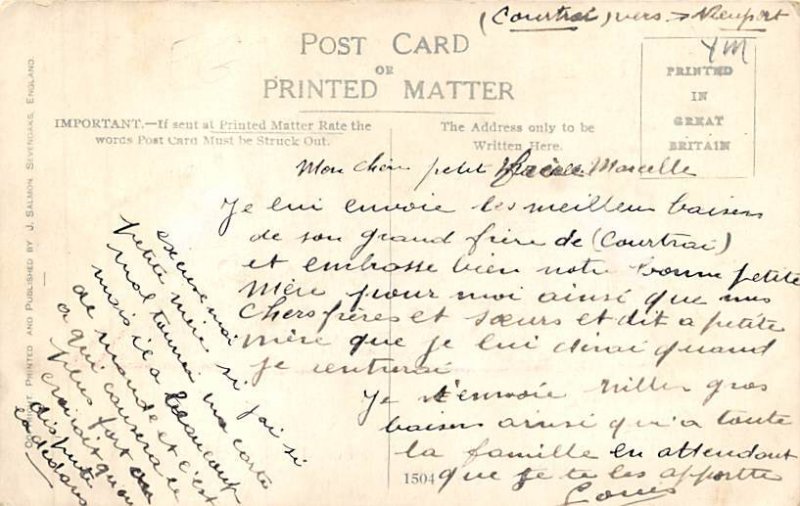 (Courtrai) vers → Nieuport
YM
POST CARD
OR
PRINTED MATTER
PRINTED
IN
GREAT
BRITAIN
IMPORTANT.—If sent at Printed Matter Rate the
words Post Card Must be Struck Out.
The Address only to be
Written Here.
COPYRIGHT PRINTED AND PUBLISHED BY J. SALMON, SEVENOAKS, ENGLAND.
Mon cher petit Marcelle
Je lui envoie les meilleur baisers
de son grand frère de (Courtrai)
et embrasse bien notre bonne petite
Mère pour moi ainsi que nos
Chers frères et sœurs et dit a petite
mère que je lui dirai quand
je rentrerai
Je t'envoie milles gros
baisers ainsi qu'a toute
la famille en attendant
que je te les apporttes
Louis
1504
excuse moi
petite mère si j'ai si
mal tourner ma carte
mais il a beaucoup
de monde et c'est
a qui causera le
plus fort on
croirait qu'on
dispute
la dedans